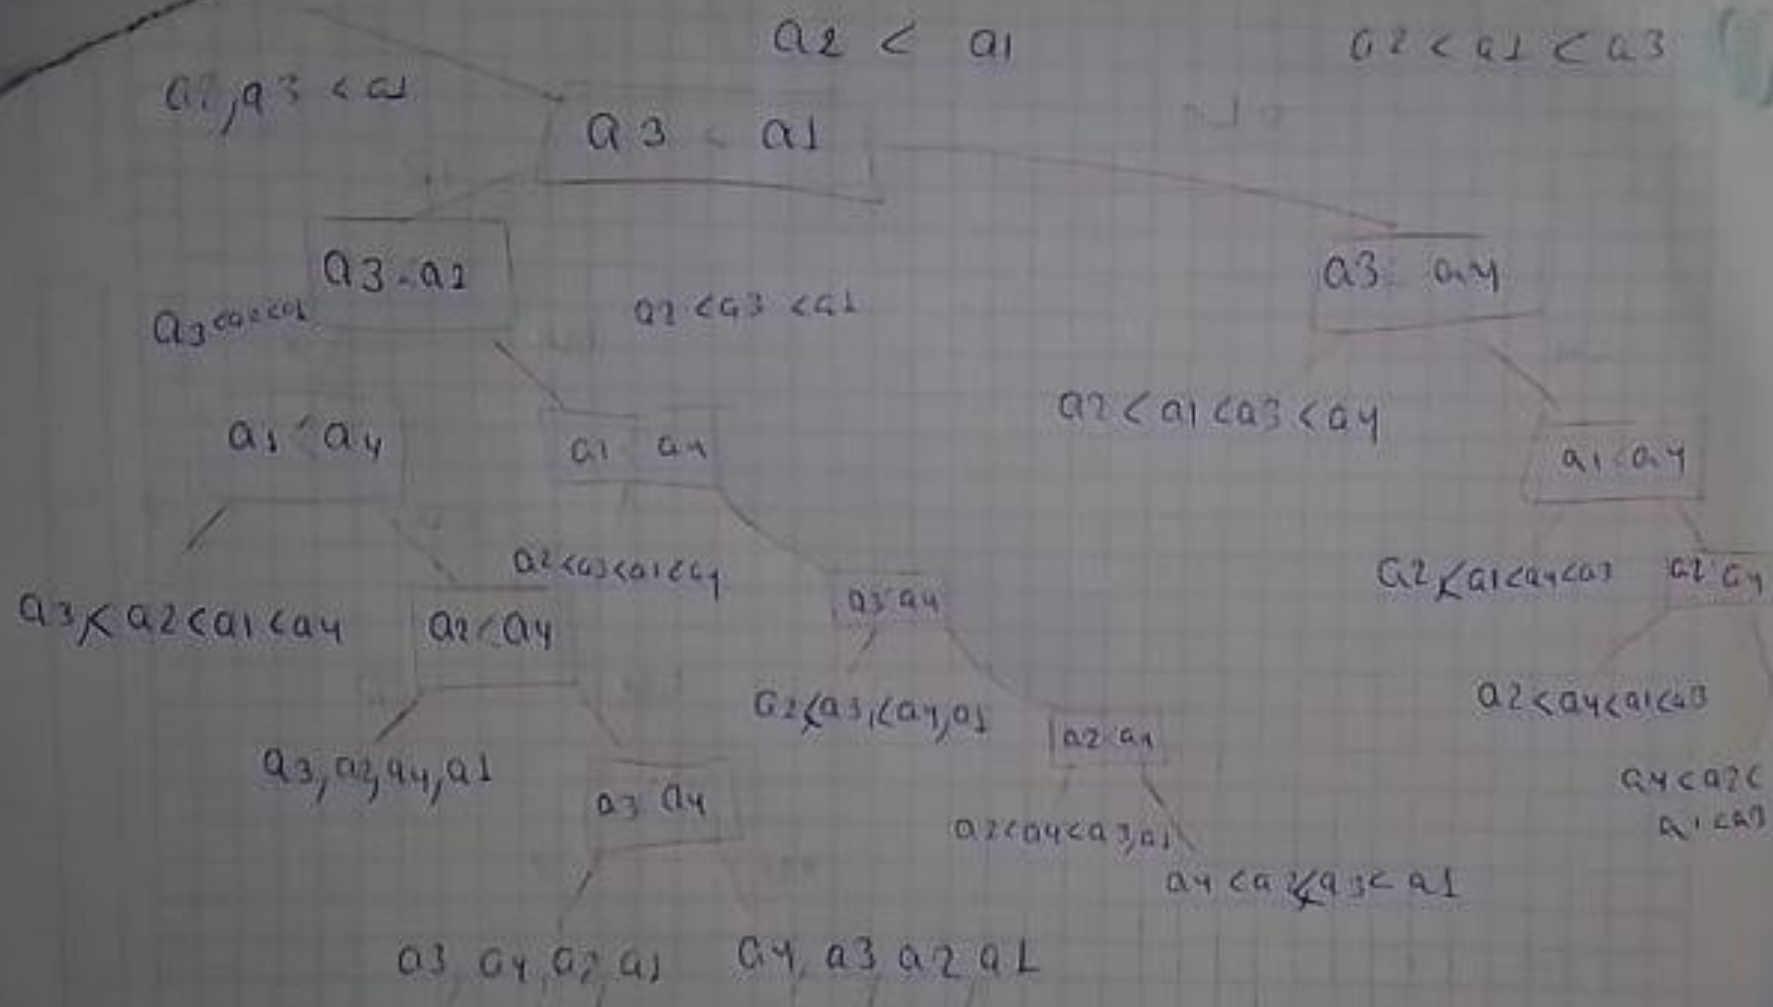 a2 < a1
a2 < a1 < a3
a2, a3 < a1
a3 < a1
a3 < a2
a3 a4
a3<a2<a1
a2 <a3 <a1
a2 < a1 < a3 < a4
a1 < a4
a1 a4
a1 < a4
a2<a3<a1<a4
a2 < a1<a4<a3
a2 a4
a3 < a2 < a1 < a4
a2 < a4
a3 a4
a2 < a3, < a4, a1
a2 < a4 < a1 < a3
a3, a2, a4, a1
a2 a4
a3 a4
a2 < a4 < a3, a1
a4 < a2 <
a1 < a3
a4 < a2 < a3 < a1
a3 a4, a2 a1
a4, a3 a2 a1